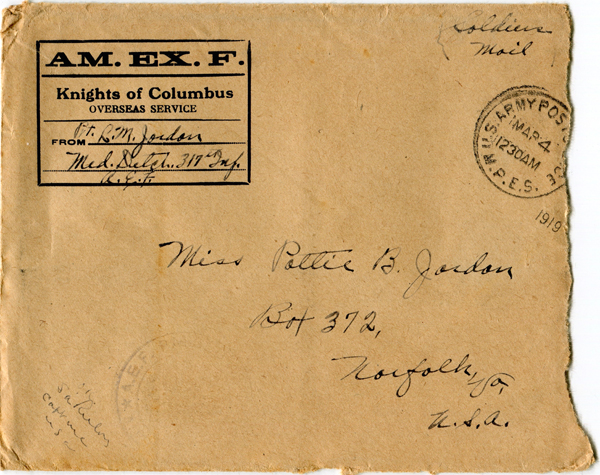 AM. EX. F.
Knights of Columbus
OVERSEAS SERVICE
FROM Pt. R. M. Jordan
Med. Detch. 317" Inf.
A.E.F.
Soldiers
Mail
U.S. ARMY POST
M.P.E.S.
MAR 4
1230AM
1919
Miss Pattie B. Jordan
Box 372,
Norfolk, Va,
U.S.A.
A.E.F.